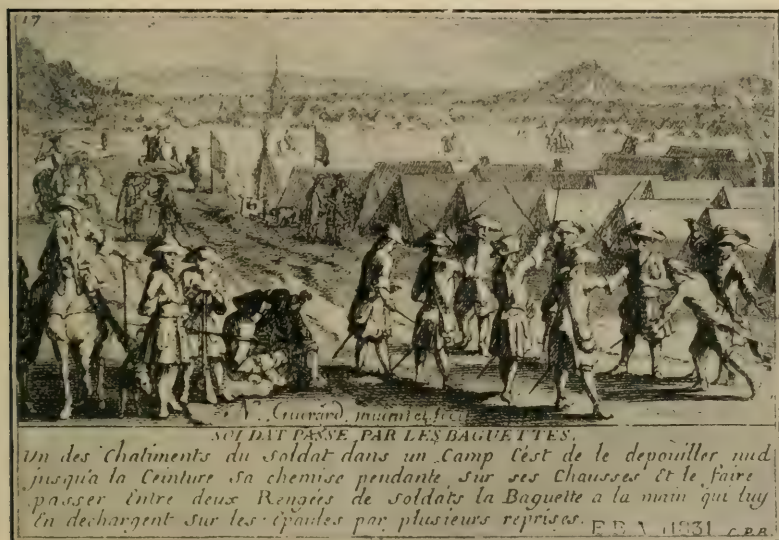 17
N. Guerard, invenit et fecit
SOLDAT PASSE PAR LES BAGUETTES.
Un des Chatiments du Soldat dans un Camp C'est de le depoüiller nud
jusqu'a la Ceinture sa chemise pendante sur ses Chausses Et le faire
passer Entre deux Rengées de soldats la Baguette a la main qui luy
En dechargent sur les épaules par plusieurs reprises. E.B.A. 1831 C.P.R.